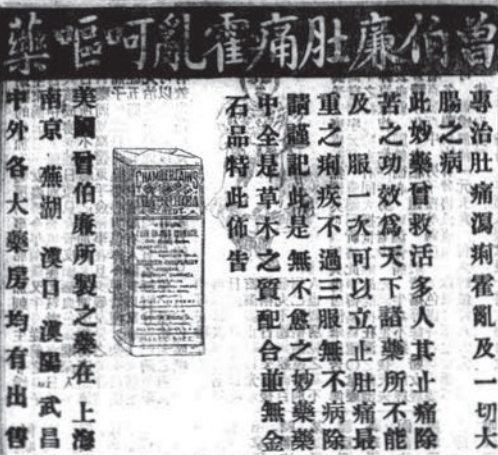 曾伯廉肚痛霍亂呵嘔藥
專治肚痛瀉痢霍亂及一切大
腸之病
此妙藥曾救活多人其止痛除
苦之功效爲天下諸藥所不能
及 服一次可以立止肚痛最
重之痢疾不過三服無不病除
請謹記此是無不愈之妙藥藥
中全是草木之質配合並無金
石品特此佈告
CHAMBERLAIN'S
美國曾伯廉所製之藥在 上海
南京 蕪湖 漢口 漢陽 武昌
中外各大藥房均有出售